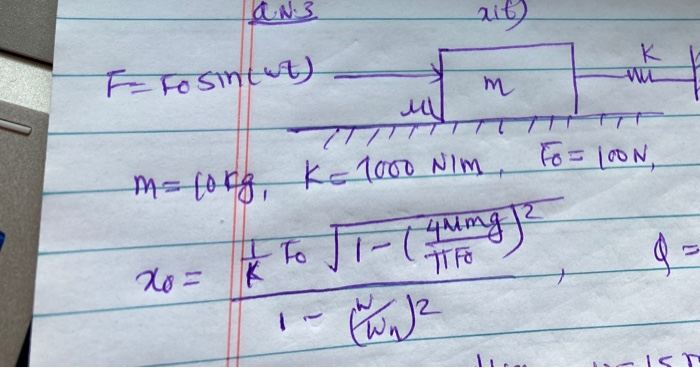 Q.N.3
x(t)
F = F₀ sin(wt)
m
K
μ
m = 10 kg, K = 1000 N/m, F₀ = 100 N,
x₀ = (1/K F₀ √(1 - (4μmg/πF₀)²)) / (1 - (w/wₙ)²), φ =